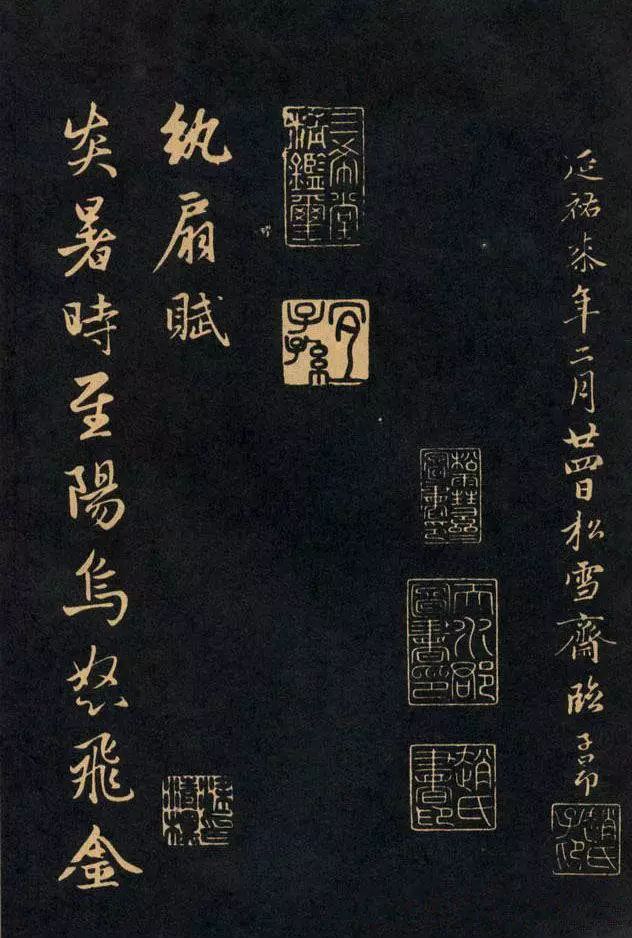 延祐柒年二月廿四日松雪齋臨子昂
趙氏子昂
天水郡圖書印
趙氏書印
三希堂精鑑璽
宜子孫
紈扇賦
炎暑時至陽烏怒飛金